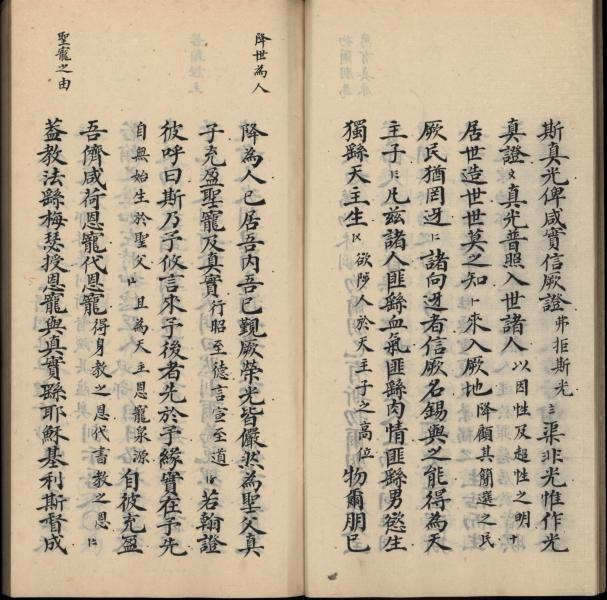 斯真光俾咸實信厥證弗拒斯光渠非光惟作光
真證真光普照入世諸人以因性及超性之明十
居世造世世莫之知來入厥地降顧其簡選之民
厥民猶罔迓諸向迓者信厥名錫與之能得為天
主子凡茲諸人匪繇血氣匪繇肉情匪繇男慾生
獨繇天主生欲陟人於天主子之高位物爾朋已
降世為人
降為人已居吾內吾已覲厥榮光皆儼然為聖父真
子充盈聖寵及真實行昭至德言宣至道若翰證
彼呼曰斯乃予攸言來予後者先於予緣實在予先
自無始生於聖父且為天主恩寵泉源自彼充盈
聖寵之由
吾儕咸荷恩寵代恩寵得身教之恩代書教之恩
蓋教法繇梅瑟授恩寵與真實繇耶穌基利斯督成